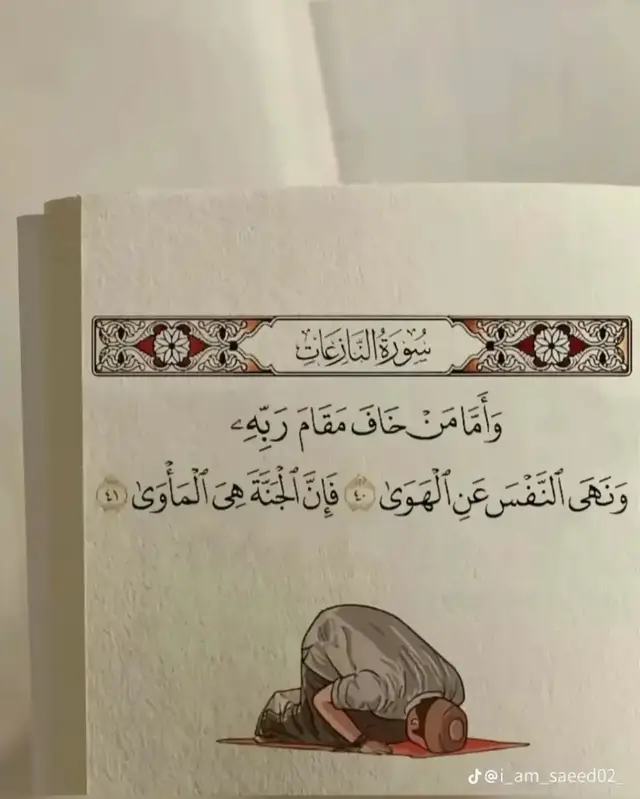 سُورَةُ النَّازِعَاتِ
وَأَمَّا مَنْ خَافَ مَقَامَ رَبِّهِۦ
وَنَهَى ٱلنَّفْسَ عَنِ ٱلْهَوَىٰ ٤٠ فَإِنَّ ٱلْجَنَّةَ هِىَ ٱلْمَأْوَىٰ ٤١
@i_am_saeed02_